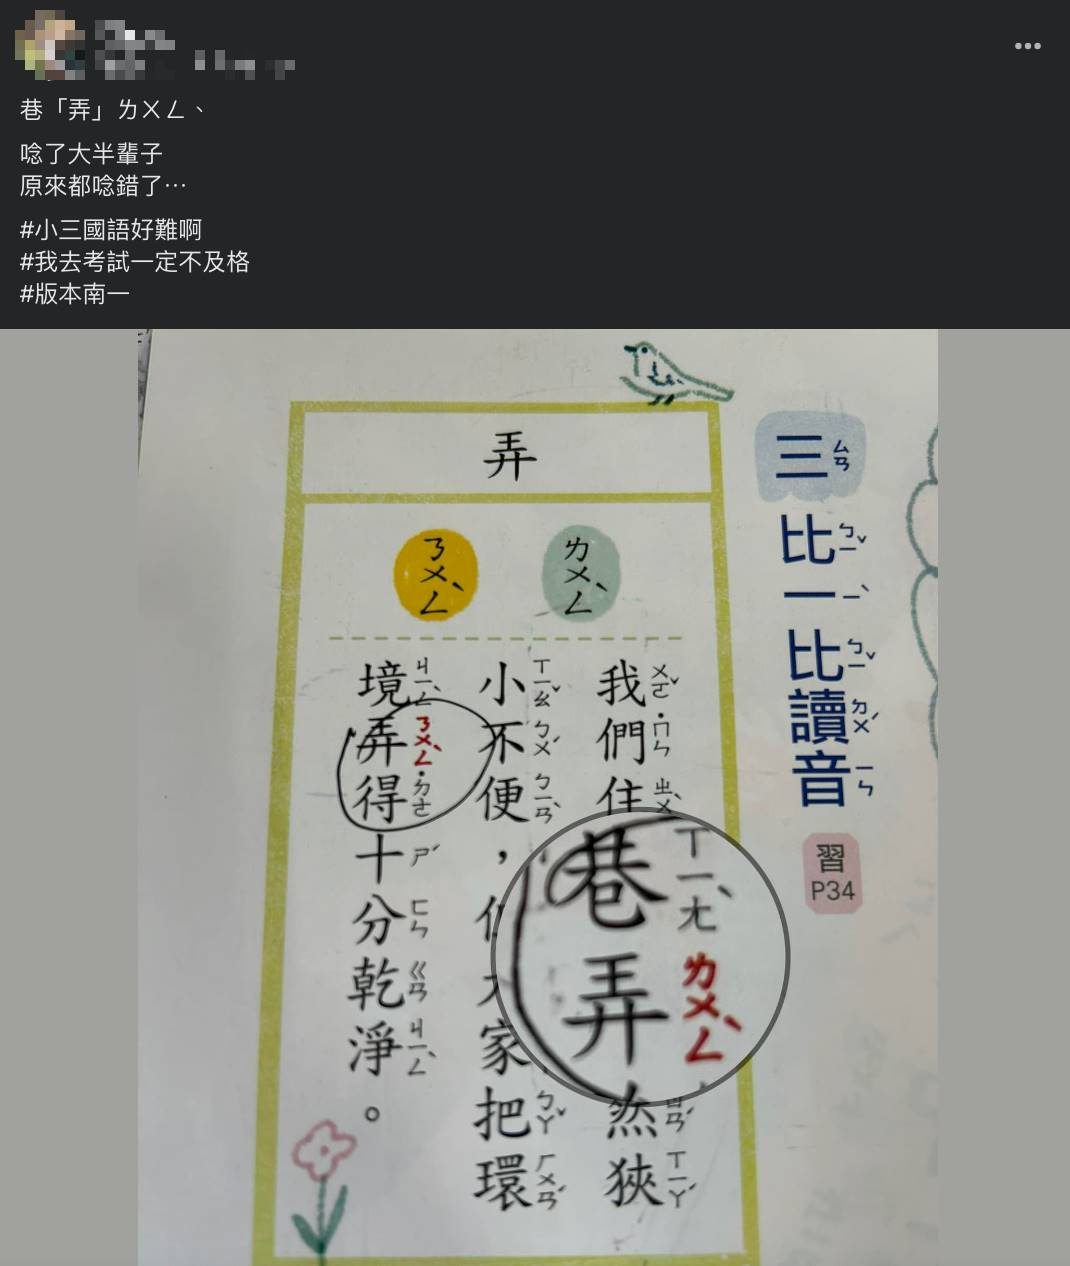 巷「弄」ㄌㄨㄥ、
唸了大半輩子
原來都唸錯了⋯
#小三國語好難啊
#我去考試一定不及格
#版本南一
三ㄙㄢ比ㄅㄧˇ一ㄧˋ比ㄅㄧˇ讀ㄉㄨˊ音ㄧㄣ
習
P34
弄
ㄌㄨㄥˋ
我ㄨㄛˇ們˙ㄇㄣ住ㄓㄨˋ巷ㄒㄧㄤˋ弄ㄌㄨㄥˋ
狹ㄒㄧㄚˊ
小ㄒㄧㄠˇ不ㄅㄨˊ便ㄅㄧㄢˋ，
家
把ㄅㄚˇ環ㄏㄨㄢˊ
ㄋㄨㄥˋ
境ㄐㄧㄥˋ弄ㄋㄨㄥˋ得˙ㄉㄜ十ㄕˊ分ㄈㄣ乾ㄍㄢ淨ㄐㄧㄥˋ。